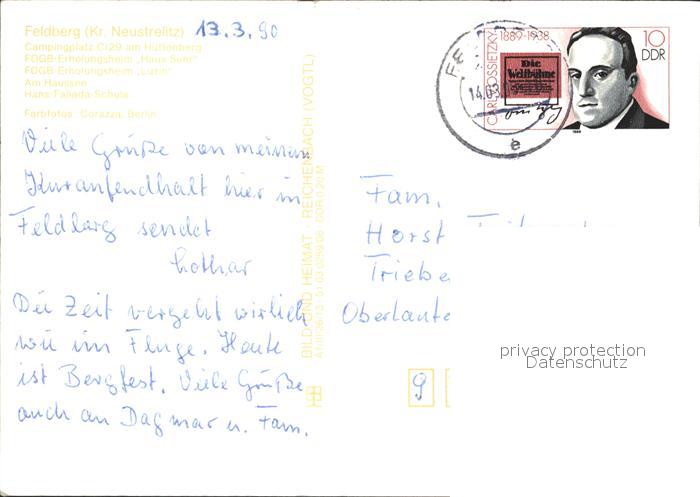 Feldberg (Kr. Neustrelitz) 13.3.90
Campingplatz C/29 am Hüttenberg
FDGB-Erholungsheim „Haus Sehr"
FDGB-Erholungsheim „Luzin"
Am Haussee
Hans-Fallada-Schule
Farbfotos: Corazza, Berlin
Viele Grüße von meinem
Kuraufendhalt hier in
Feldberg sendet
Lothar
Die Zeit vergeht wirlich
wie im Fluge. Heute
ist Bergfest. Viele Grüße
auch an Dagmar u. Fam.
BILD UND HEIMAT · REICHENBACH (VOGTL)
CARL VON OSSIETZKY 1889-1938
Die
Weltbühne
10
DDR
1989
14.03
e
Fam.
Horst
Triebe
Oberlaute
9
privacy protection
Datenschutz